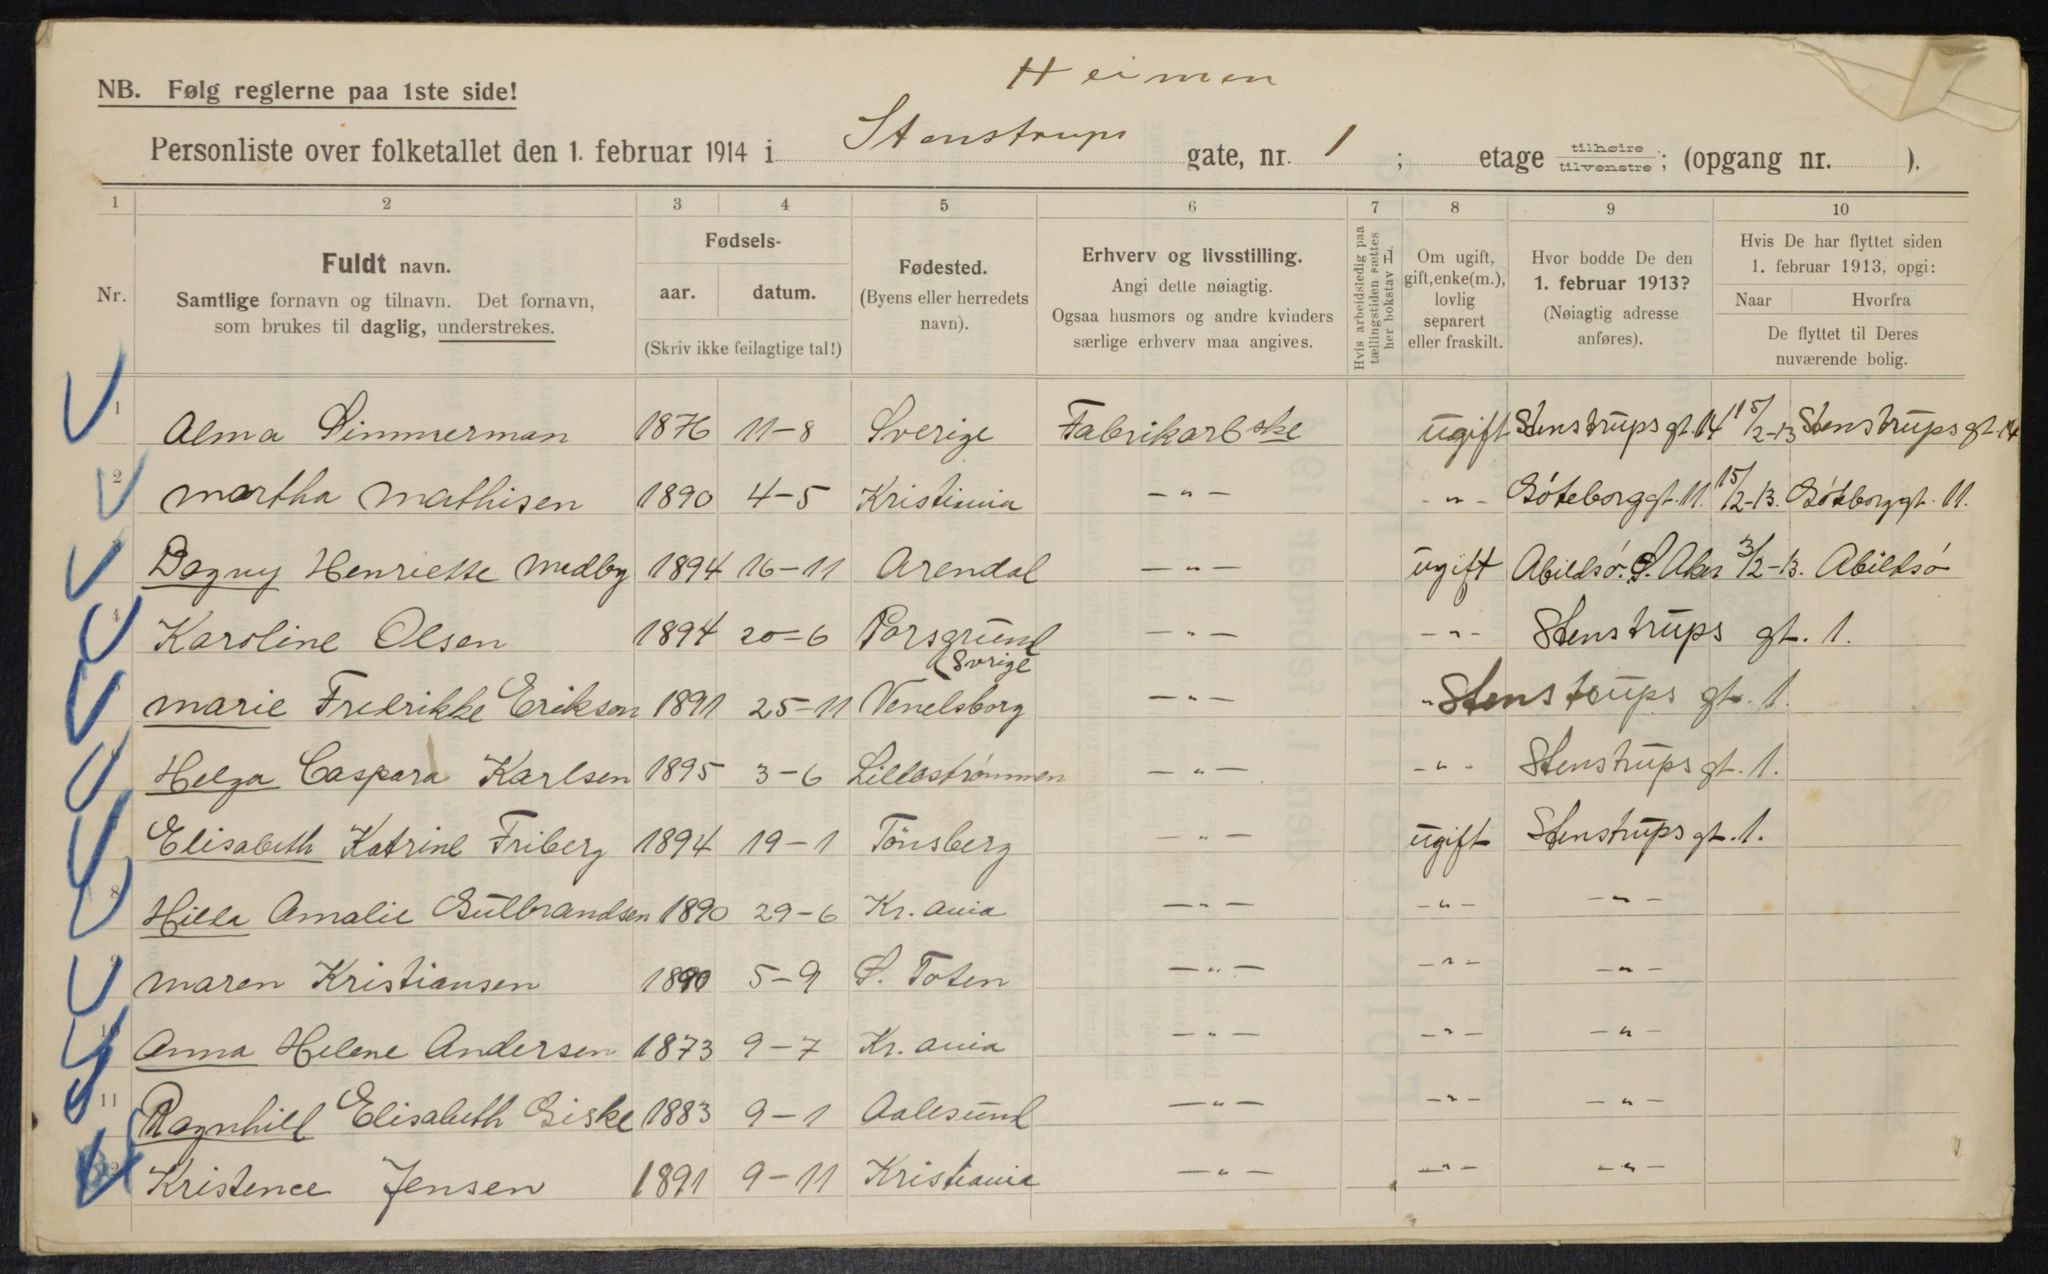 Heimen
NB. Følg reglerne paa 1ste side!
Personliste over folketallet den 1. februar 1914 i Stenstrups gate, nr. 1 ; etage tilhøire/tilvenstre; (opgang nr. ).
1 2 3 4 5 6 7 8 9 10
Nr.
Fuldt navn.
Samtlige fornavn og tilnavn. Det fornavn,
som brukes til daglig, understrekes.
Fødsels-
aar. datum.
(Skriv ikke feilagtige tal!)
Fødested.
(Byens eller herredets
navn).
Erhverv og livsstilling.
Angi dette nøiagtig.
Ogsaa husmors og andre kvinders
særlige erhverv maa angives.
Hvis arbeidsledig paa
tællingstiden sættes
her bokstav L.
Om ugift,
gift, enke(m.),
lovlig
separert
eller fraskilt.
Hvor bodde De den
1. februar 1913?
(Nøiagtig adresse
anføres).
Hvis De har flyttet siden
1. februar 1913, opgi:
Naar Hvorfra
De flyttet til Deres
nuværende bolig.
1 Alma Simmerman 1876 11-8 Sverige Fabrikarbske ugift Stenstrups gt. 14 15/2-13 Stenstrups gt. 14
2 Martha Mathisen 1890 4-5 Kristiania -"- -"- Göteborggt. 11. 15/2-13. Göteborggt. 11.
3 Dagny Henriette Medby 1894 16-11 Arendal -"- ugift Abildsö. Ø. Aker 3/2-13. Abildsö
4 Karoline Olsen 1894 20-6 Porsgrund -"- -"- Stenstrups gt. 1.
(Sverige
Marie Fredrikke Erikson 1891 25-11 Venelsborg -"- " Stenstrups gt. 1.
Helga Caspara Karlsen 1895 3-6 Lillestrømmen -"- -"- Stenstrups gt. 1.
Elisabeth Katrine Friberg 1894 19-1 Tönsberg -"- ugift Stenstrups gt. 1.
8 Hilda Amalie Gulbrandsen 1890 29-6 Kr.ania -"- -"- -"-
9 Maren Kristiansen 1890 5-9 Ø. Toten -"- -"- -"-
10 Anna Helene Andersen 1873 9-7 Kr.ania -"- -"- -"-
11 Ragnhild Elisabeth Giske 1883 9-1 Aalesund -"- -"- -"-
12 Kristence Jensen 1891 9-11 Kristiania -"- -"- -"-